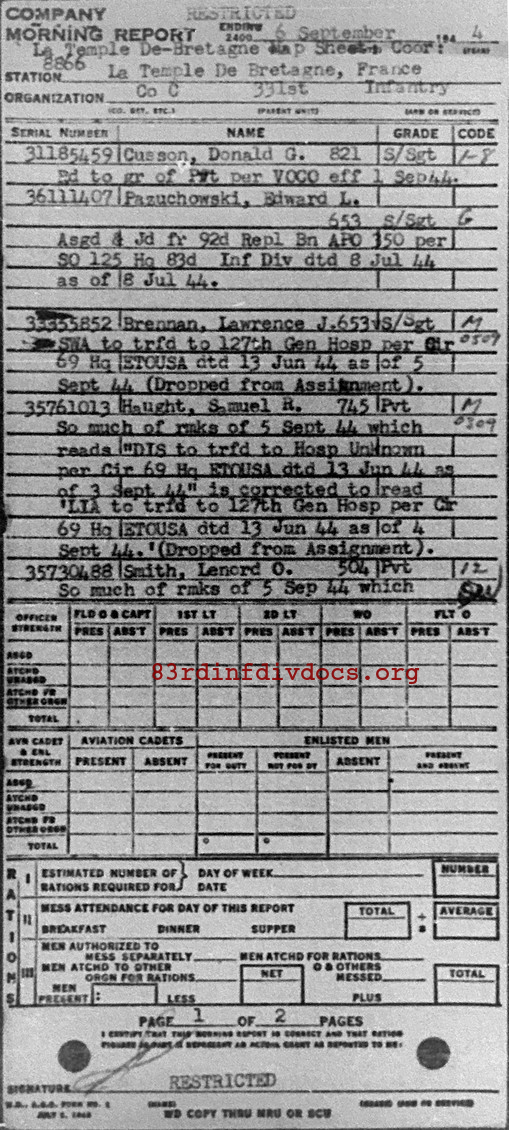 COMPANY RESTRICTED
MORNING REPORT ENDING 2400 6 September 194 4
La Temple De-Bretagne Map Sheet: Coor:
8866
STATION La Temple De Bretagne, France
ORGANIZATION Co C 331st Infantry
(CO. DET. ETC.) (PARENT UNIT) (ARM OR SERVICE)
SERIAL NUMBER NAME GRADE CODE
31185459 Cusson, Donald G. 821 S/Sgt 1-8
Rd to gr of Pvt per VOCO eff 1 Sep44.
36111407 Pazuchowski, Edward L.
653 S/Sgt G
Asgd & Jd fr 92d Repl Bn APO 350 per
SO 125 Hq 83d Inf Div dtd 8 Jul 44
as of 8 Jul 44.
33355852 Brennan, Lawrence J. 653 S/Sgt M
SWA to trfd to 127th Gen Hosp per Cir 0309
69 Hq ETOUSA dtd 13 Jun 44 as of 5
Sept 44 (Dropped from Assignment).
35761013 Haught, Samuel R. 745 Pvt M
So much of rmks of 5 Sept 44 which 0309
reads "DIS to trfd to Hosp Unknown
per Cir 69 Hq ETOUSA dtd 13 Jun 44 as
of 3 Sept 44" is corrected to read
'LIA to trfd to 127th Gen Hosp per Cir
69 Hq ETOUSA dtd 13 Jun 44 as of 4
Sept 44.'(Dropped from Assignment).
35730488 Smith, Lenord O. 504 Pvt 12
So much of rmks of 5 Sep 44 which
OFFICER STRENGTH FLD O & CAPT 1ST LT 2D LT WO FLT O
PRES ABS'T PRES ABS'T PRES ABS'T PRES ABS'T PRES ABS'T
ASGD
ATCHD UNASGD
ATCHD FR OTHER ORGN
TOTAL
83rdinfdivdocs.org
AVN CADET & ENL STRENGTH AVIATION CADETS ENLISTED MEN
PRESENT ABSENT PRESENT FOR DUTY PRESENT NOT FOR DY ABSENT PRESENT AND ABSENT
ASGD
ATCHD UNASGD
ATCHD FR OTHER ORGN
TOTAL
RATIONS
I ESTIMATED NUMBER OF RATIONS REQUIRED FOR } DAY OF WEEK DATE NUMBER
II MESS ATTENDANCE FOR DAY OF THIS REPORT TOTAL ÷ AVERAGE
BREAKFAST DINNER SUPPER
III MEN AUTHORIZED TO MESS SEPARATELY MEN ATCHD FOR RATIONS
MEN ATCHD TO OTHER ORGN FOR RATIONS NET O & OTHERS MESSED TOTAL
MEN PRESENT: LESS PLUS
PAGE 1 OF 2 PAGES
I CERTIFY THAT THIS MORNING REPORT IS CORRECT AND THAT RATION
SIGNATURE RESTRICTED
W.D., A.G.O. FORM NO. 1
(NAME) (GRADE) (ARM OR SERVICE)
WD COPY THRU MRU OR SCU